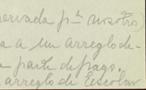 servada pr nosotros)
a a un arreglo de-
a parte de pago.
arreglo de Escolar